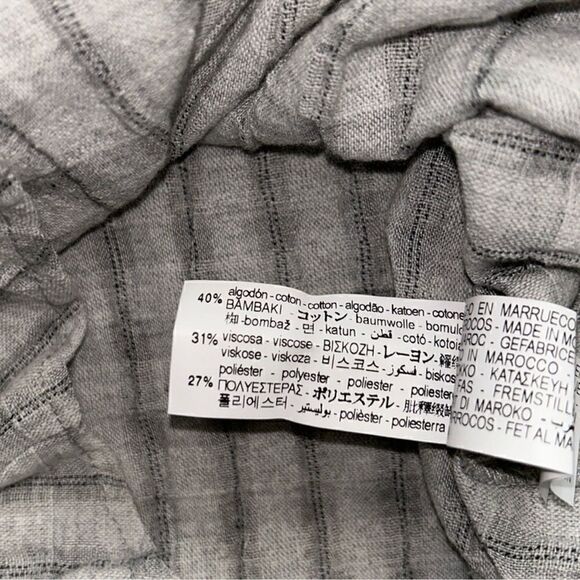 40% algodón - coton - cotton - algodão - katoen - cotone
BAMBAKI - コットン - baumwolle - bomulc
- bombaž - 면 - katun - قطن - cotó - kotoia
31% viscosa - viscose - ΒΙΣΚΟΖΗ - レーヨン -
viskose - viskoza - 비스코스 - فسكوز - biskos
27% poliéster - polyester - poliester - poliester
ΠΟΛΥΕΣΤΕΡΑΣ - ポリエステル -
폴리에스터 - بوليستير - polièster - poliesterra
EN MARRUECO
- MADE IN MO
- GEFABRICEE
IN MAROCCO
- ΚΑΤΑΣΚΕΥΗ
- FREMSTILLE
DI MAROKO -
- FET AL MA